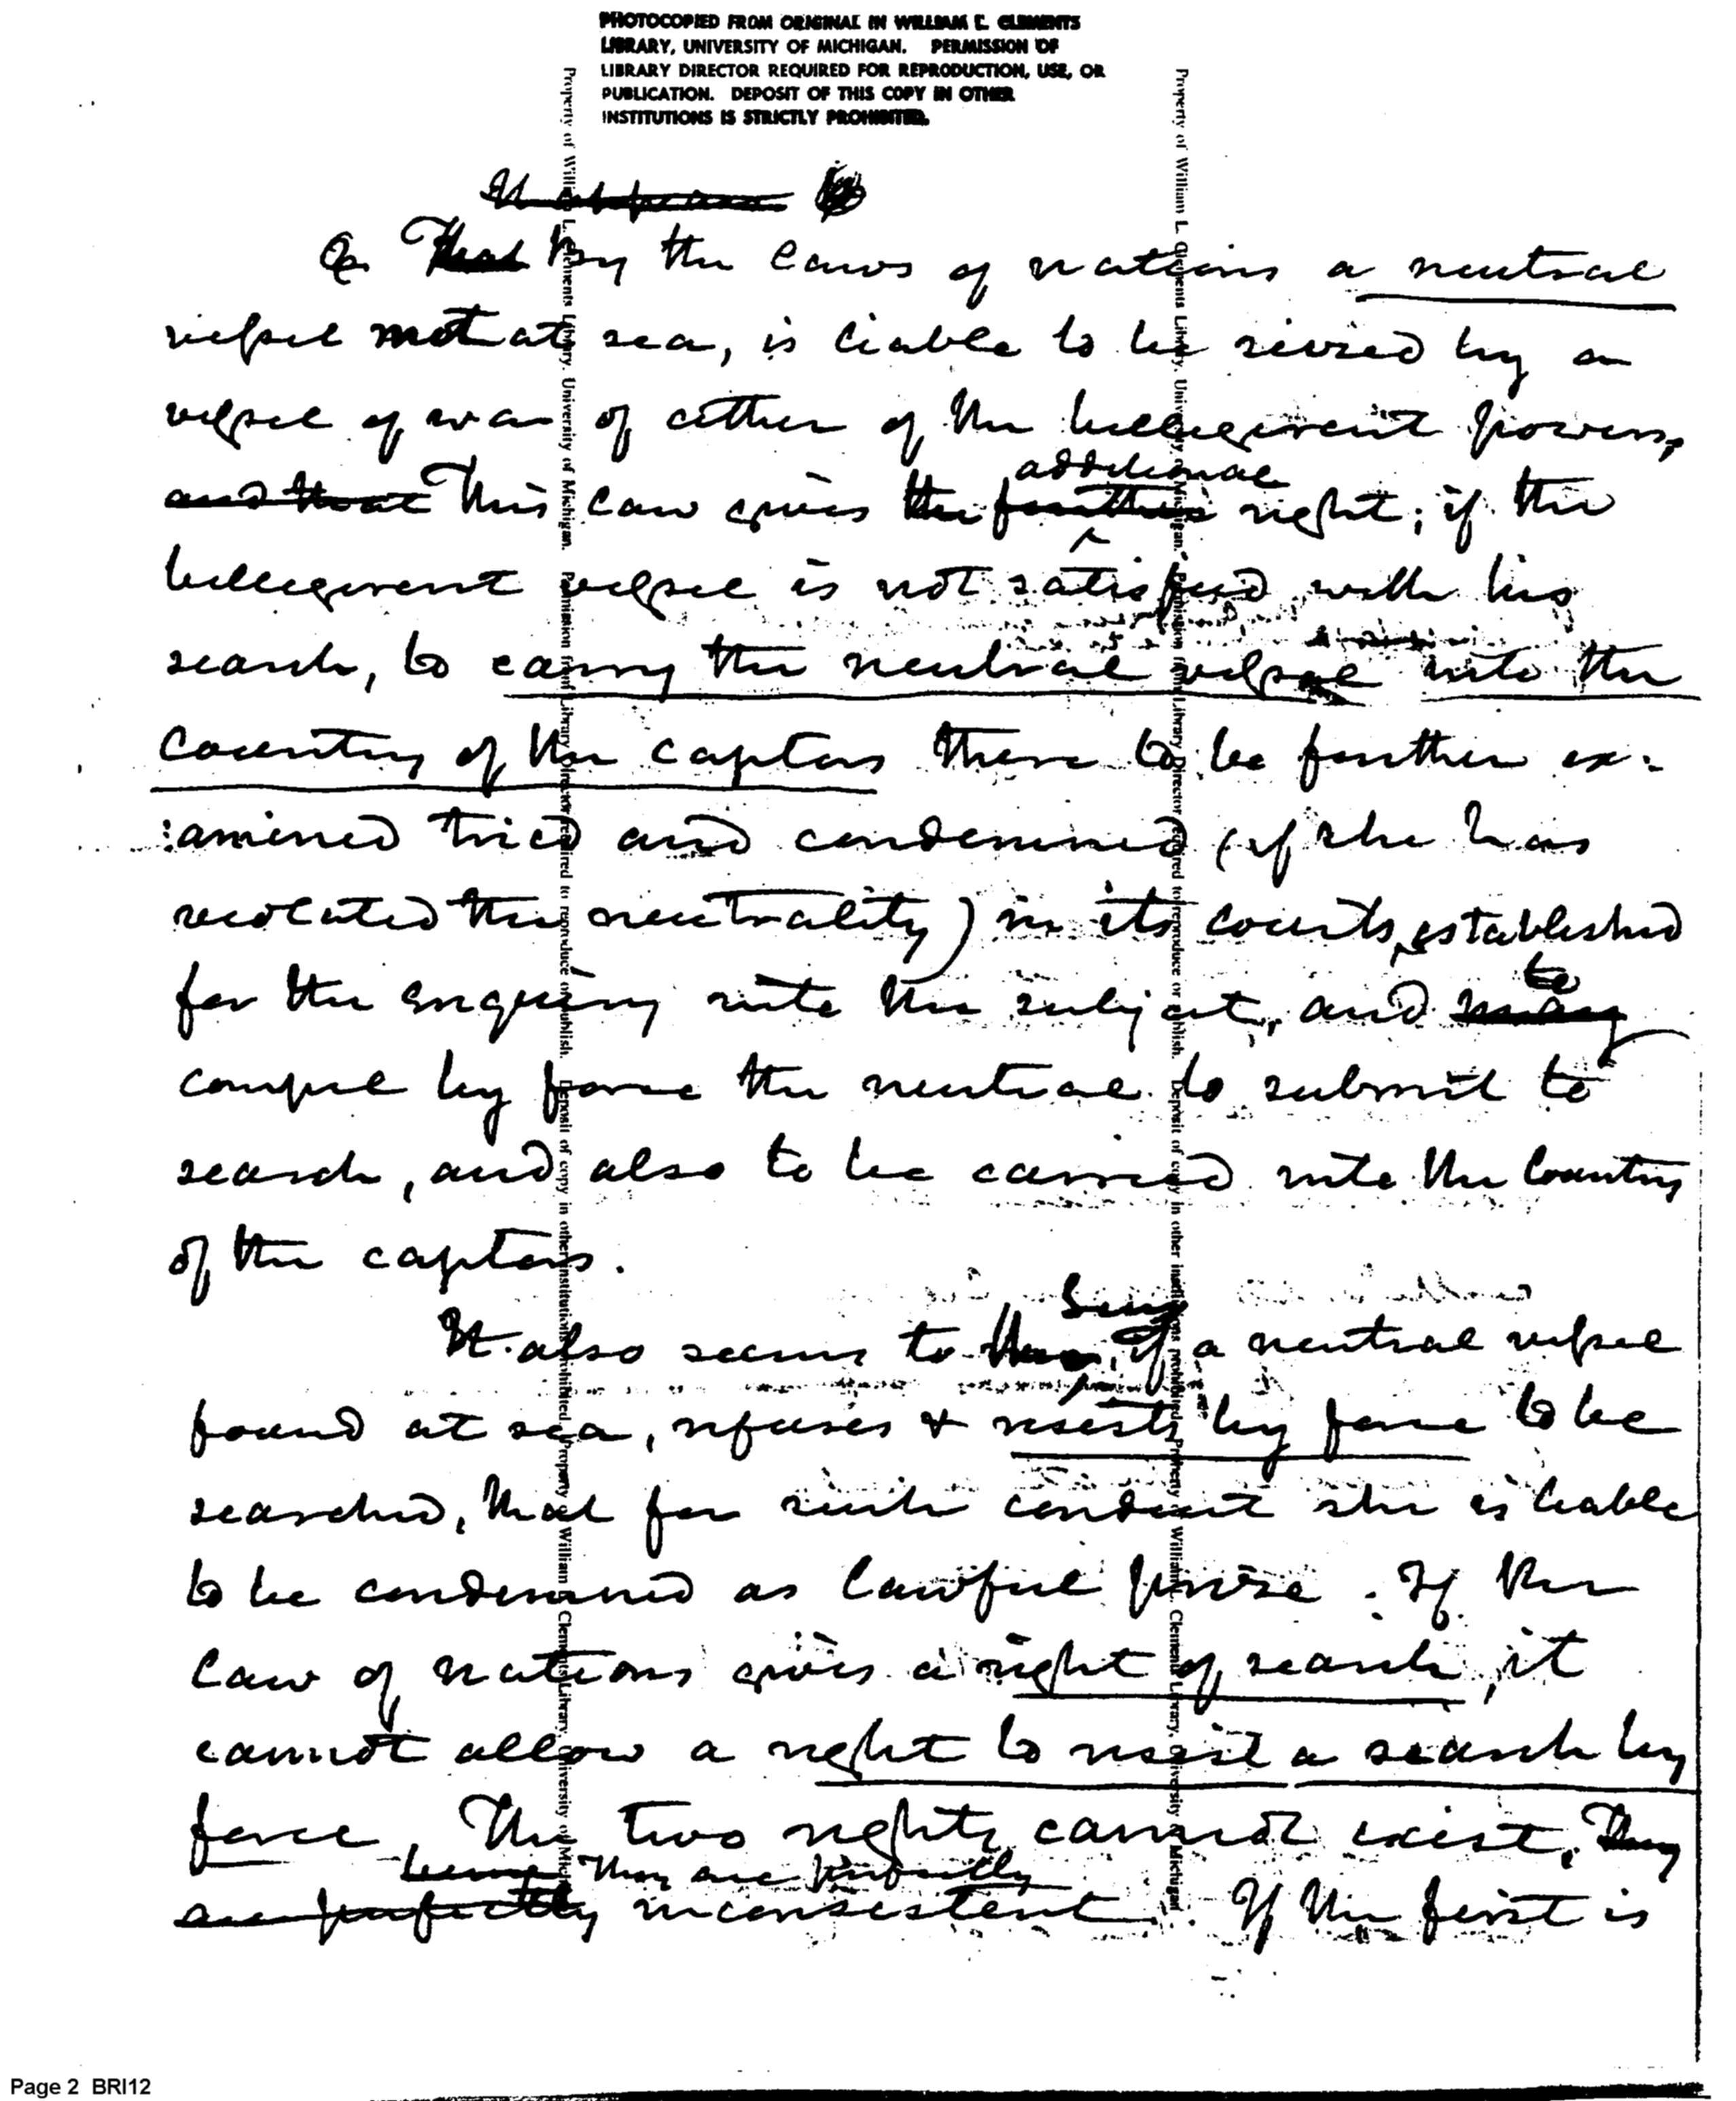 PHOTOCOPIED FROM ORIGINAL IN WILLIAM L. CLEMENTS
LIBRARY, UNIVERSITY OF MICHIGAN. PERMISSION OF
LIBRARY DIRECTOR REQUIRED FOR REPRODUCTION, USE, OR
PUBLICATION. DEPOSIT OF THIS COPY IN OTHER
INSTITUTIONS IS STRICTLY PROHIBITED.
Property of William L. Clements Library, University of Michigan. Permission from Library Director required to reproduce or publish. Deposit of copy in other institutions prohibited.
Property of William L. Clements Library, University of Michigan. Permission from Library Director required to reproduce or publish. Deposit of copy in other institutions prohibited.
Property of William L. Clements Library, University of Michigan
Property of William L. Clements Library, University of Michigan
It appears
That By the laws of nations a neutral
vessel met at sea, is liable to be seized by a
vessel of war of either of the belligerent powers,
additional
and that This law gives the further right; if the
belligerent vessel is not satisfied with his
search, to carry the neutral vessel into the
country of the captors there to be further ex:
:amined tried and condemned (if she has
violated the neutrality) in its courts, established
to
for the enquiry into the subject, and may
compel by force the neutral to submit to
search, and also to be carried into the Country
of the captors.
It also seems to if a neutral vessel
found at sea, refuses & resists by force to be
searched, that for such conduct she is liable
to be condemned as lawful prize. If the
law of nations gives a right of search, it
cannot allow a right to resist a search by
force. The two rights cannot exist, They
being they are perfectly
are perfectly inconsistent. If the first is
Page 2 BRI12